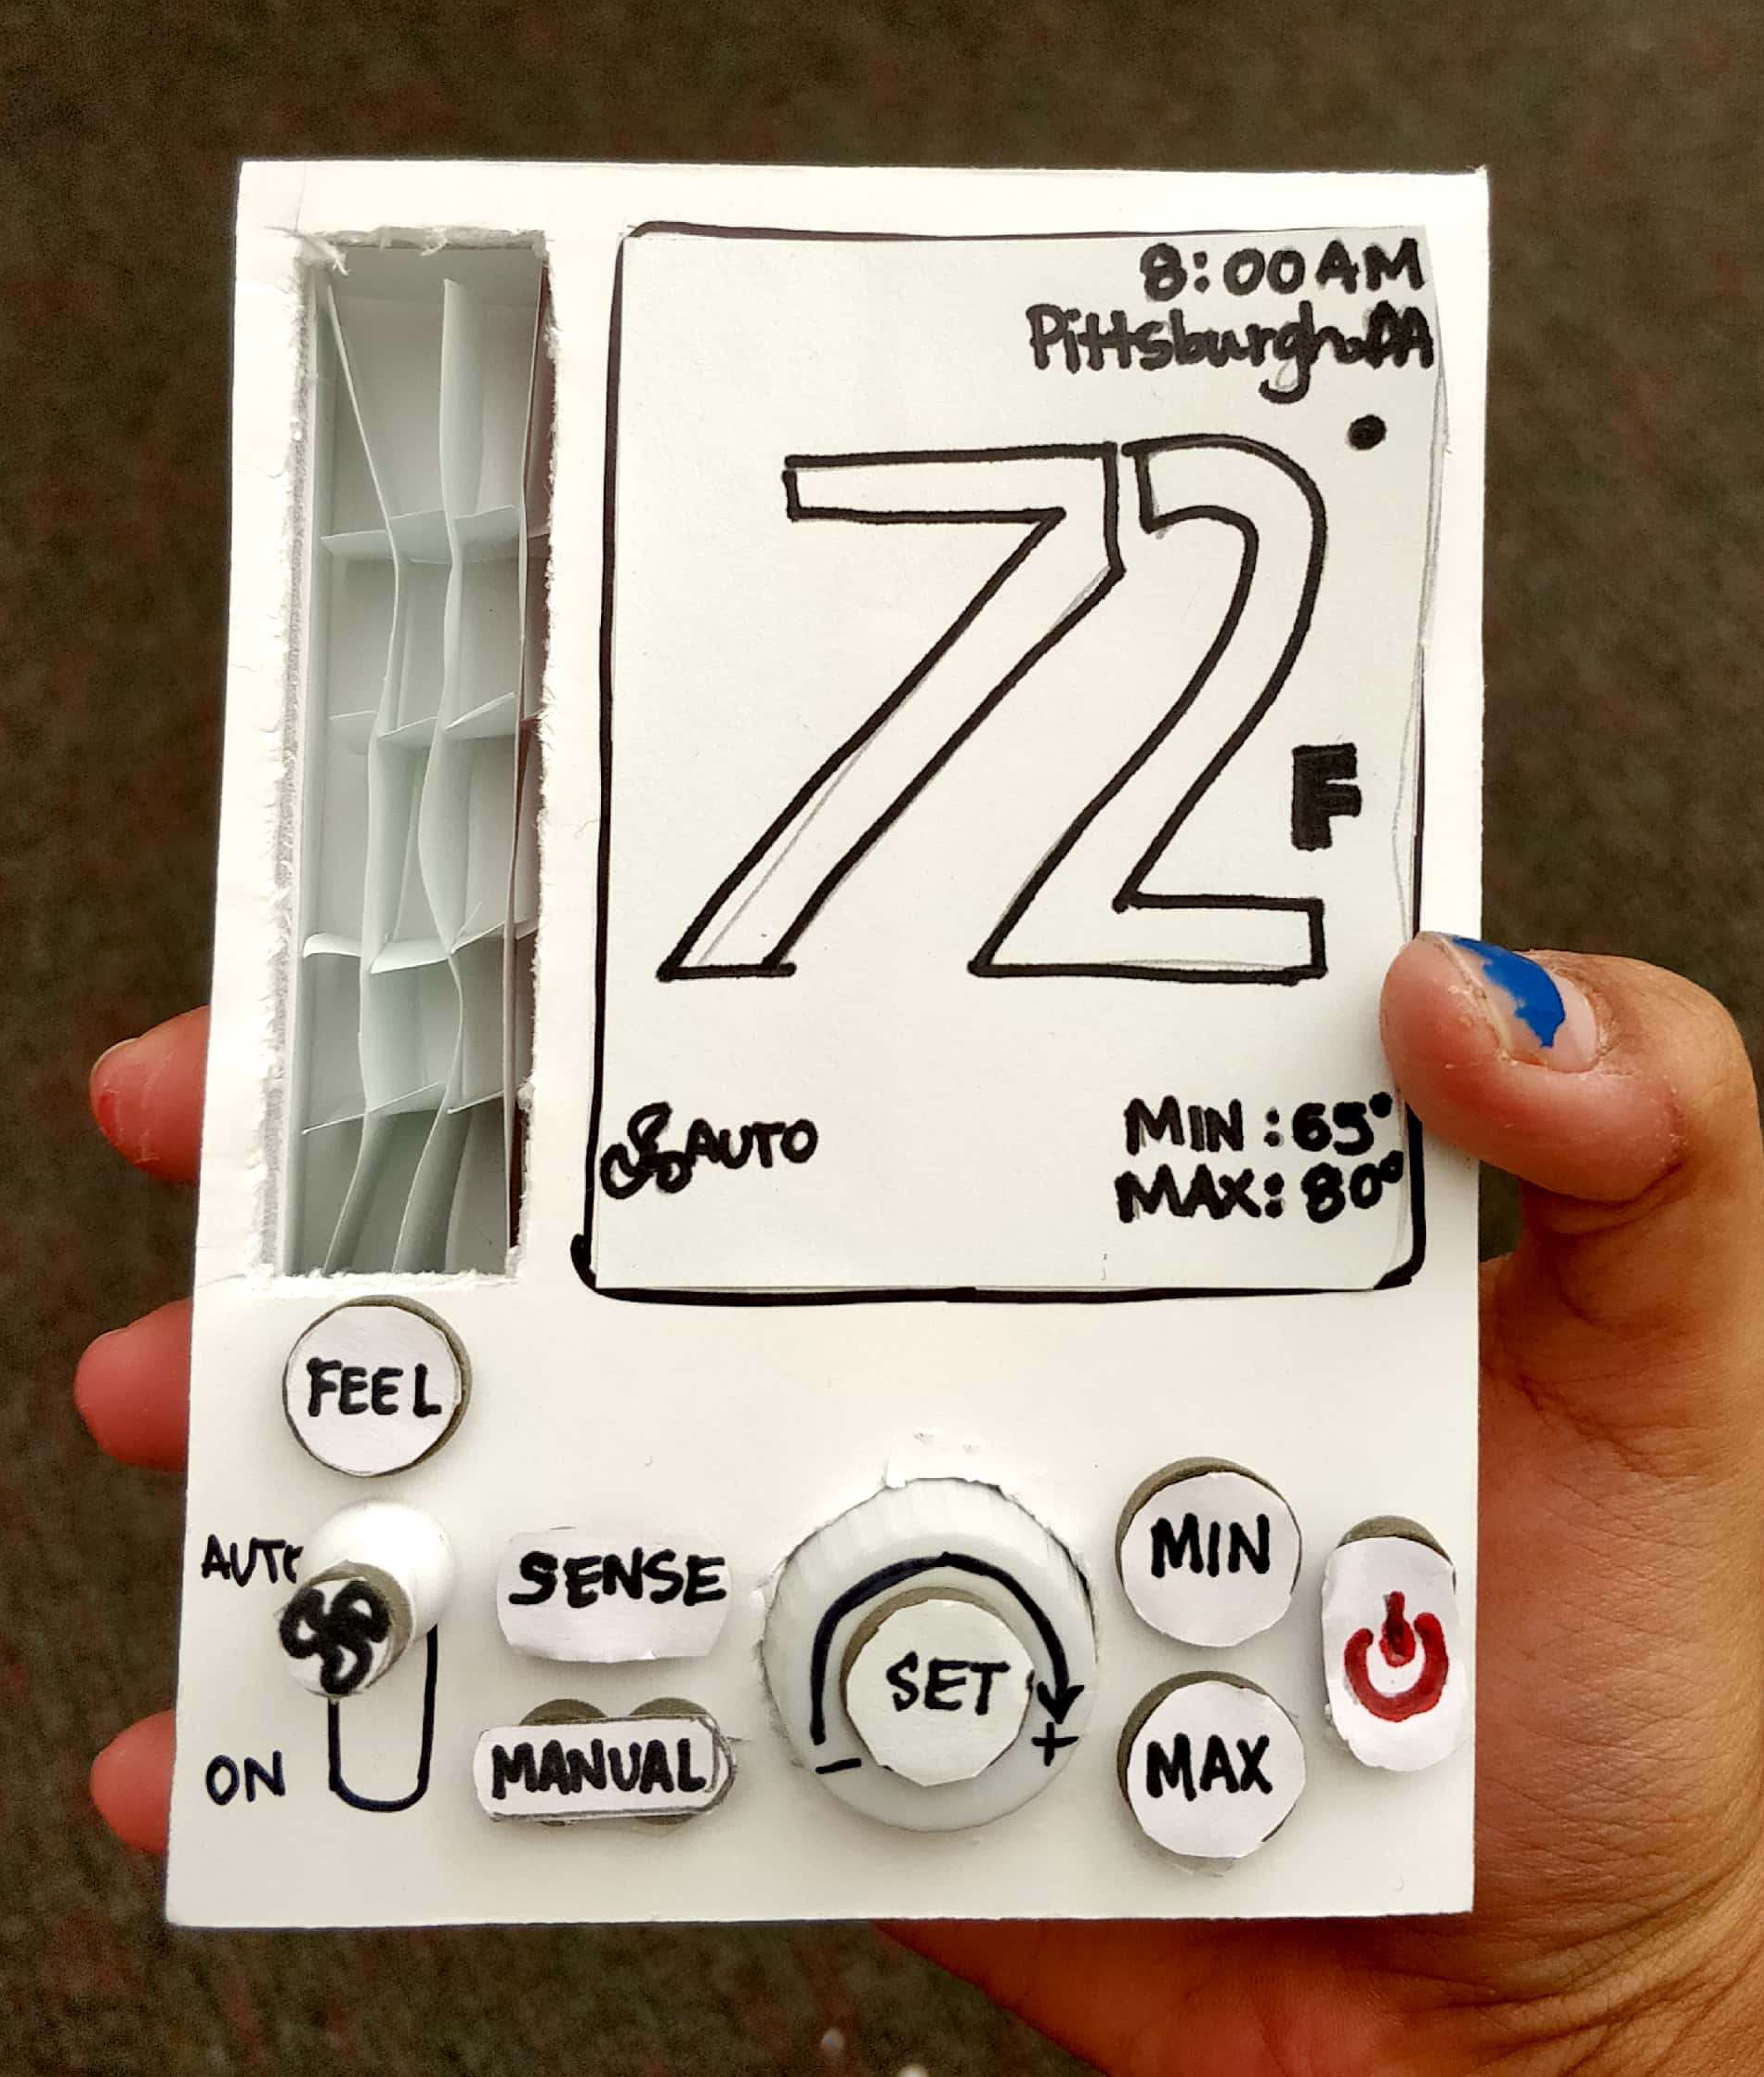 8:00AM
Pittsburgh, PA
72°
F
AUTO
MIN:65°
MAX:80°
FEEL
AUTO
SENSE
SET
- +
MIN
ON
MANUAL
MAX